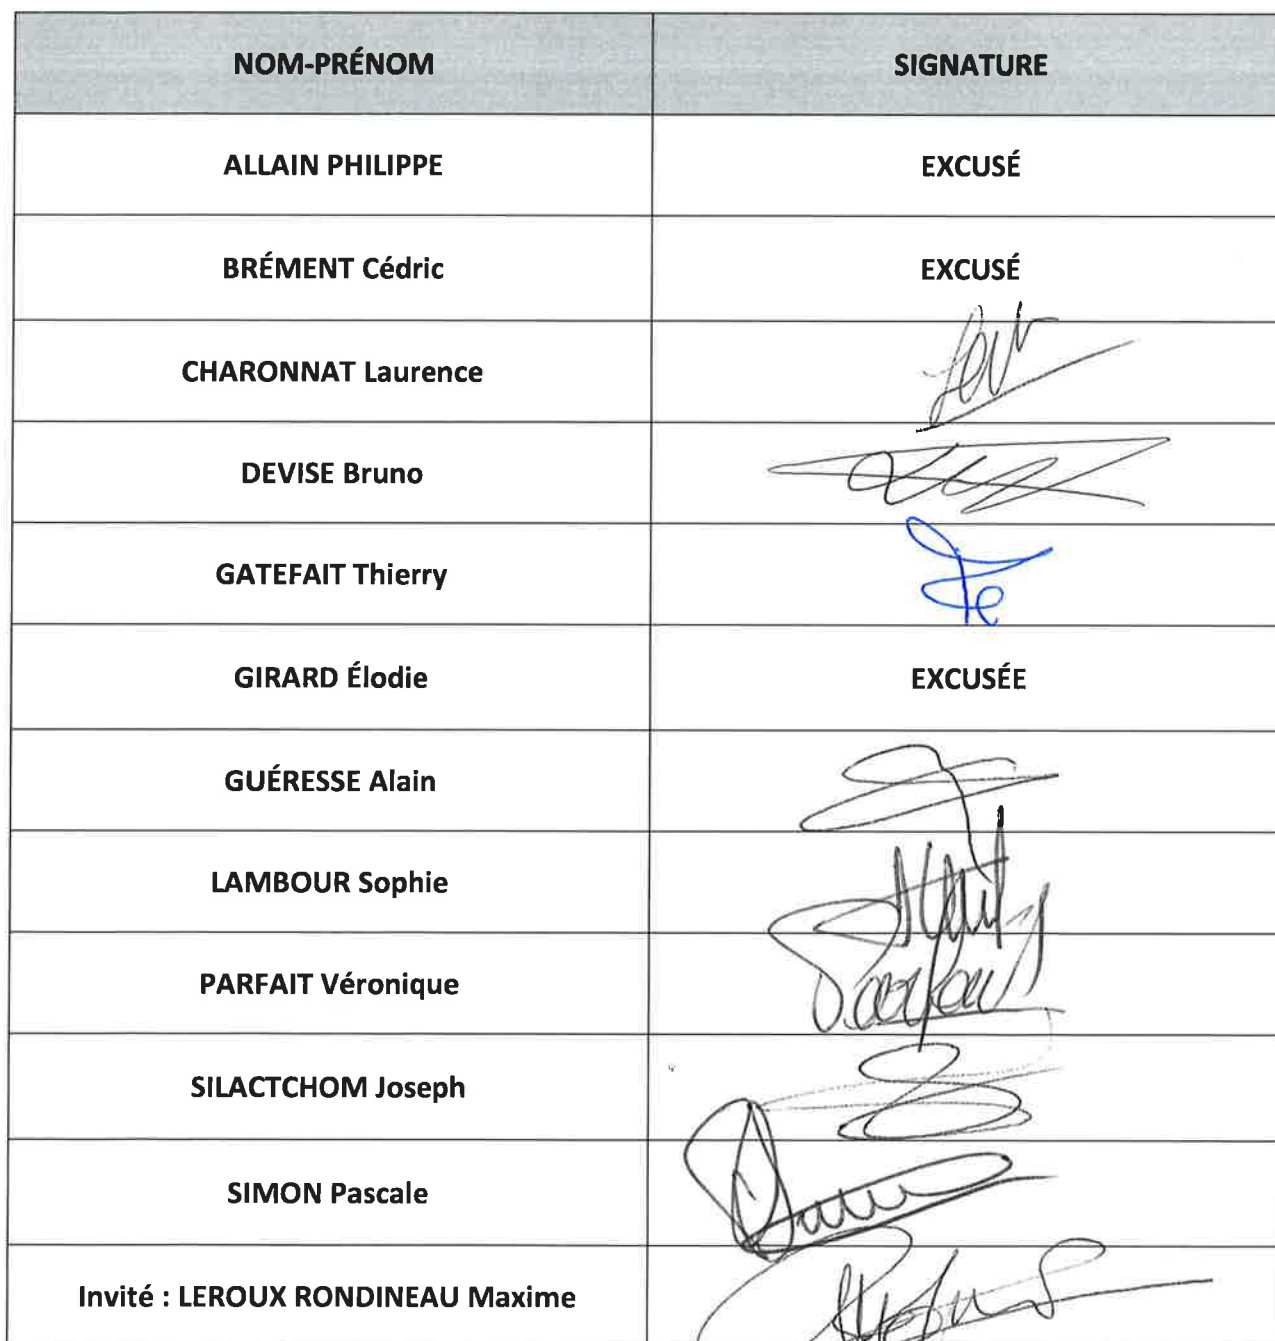 NOM-PRÉNOM SIGNATURE
ALLAIN PHILIPPE EXCUSÉ
BRÉMENT Cédric EXCUSÉ
CHARONNAT Laurence
DEVISE Bruno
GATEFAIT Thierry
GIRARD Élodie EXCUSÉE
GUÉRESSE Alain
LAMBOUR Sophie
PARFAIT Véronique
SILACTCHOM Joseph
SIMON Pascale
Invité : LEROUX RONDINEAU Maxime